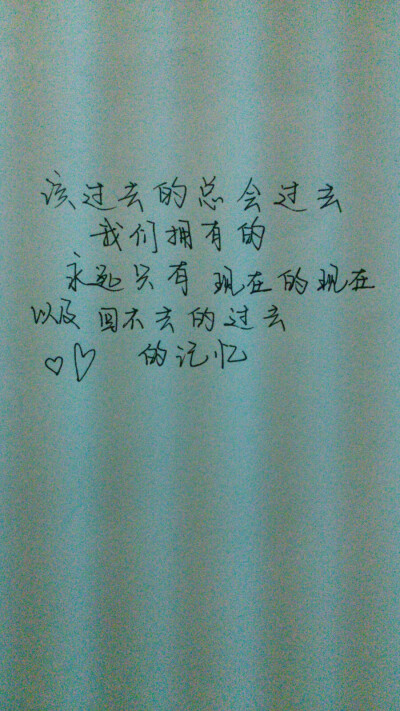 该过去的总会过去
我们拥有的
永远只有 现在的现在
以及 回不去的过去
的记忆